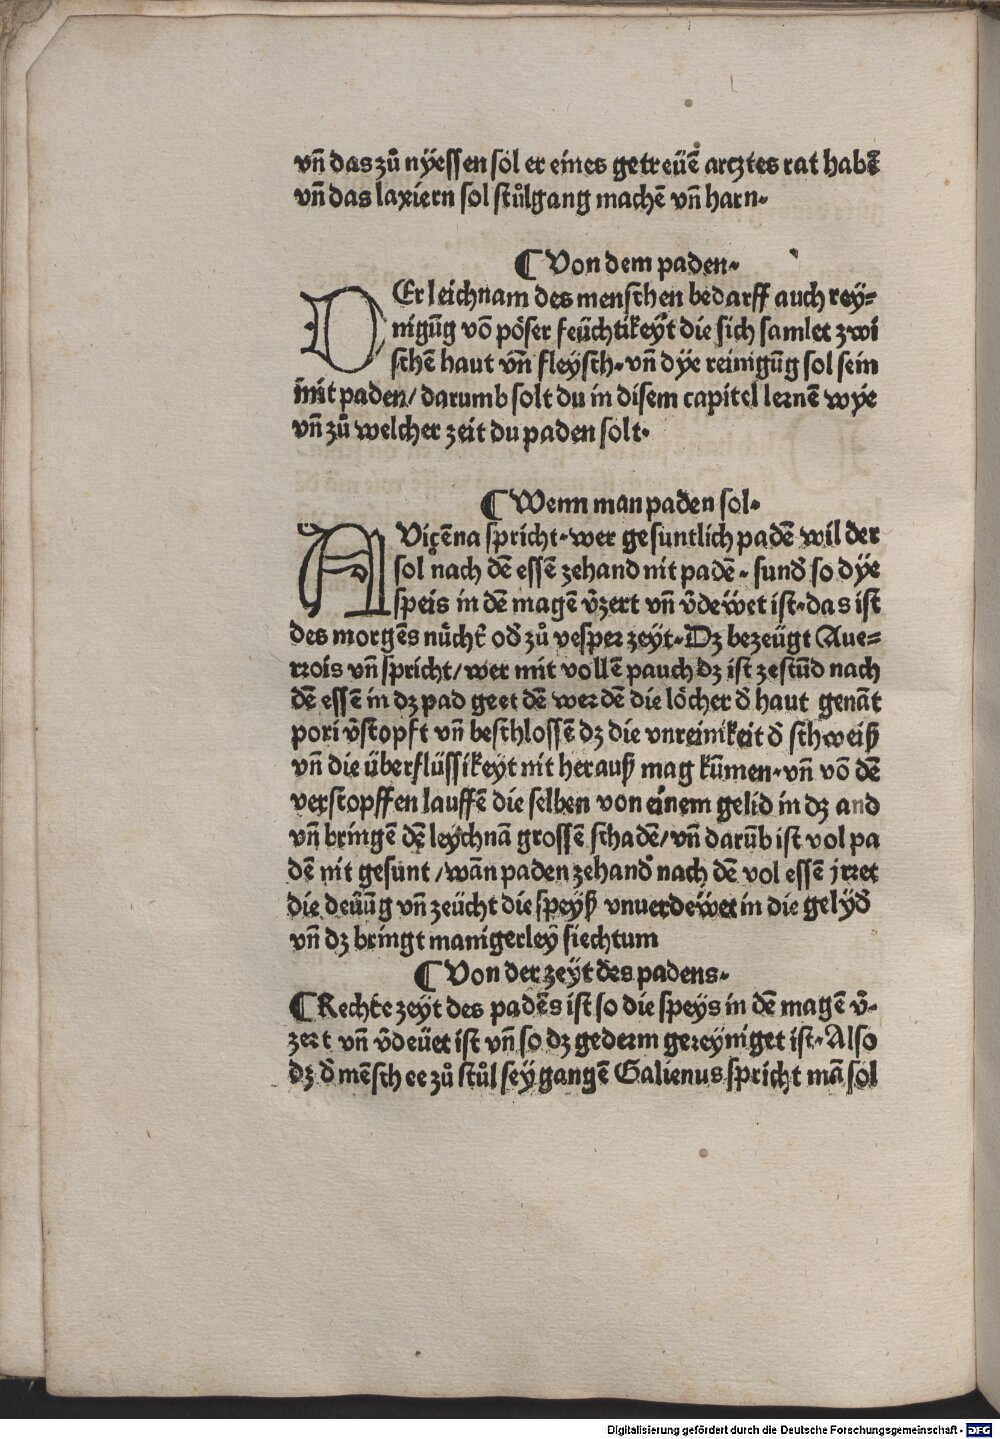 vñ das zů nÿessen sol er eines getreüẽ arcztes rat habẽ
vñ das laxiern sol stůlgang machẽ vñ harn.
¶ Von dem paden.
DEr leichnam des menschen bedarff auch rey⸗
nigũg võ pöser feüchtikeyt die sich samlet zwi
schẽ haut vñ fleysch. vñ dye reinigũg sol sein
mit paden/ darumb solt du in disem capitel lernẽ wye
vñ zů welcher zeit du paden solt.
¶ Wenn man paden sol.
AVicẽna spricht. wer gesuntlich padẽ wil der
sol nach dẽ essẽ zehand nit padẽ. sund̃ so dÿe
speis in dẽ magẽ v̈zert vñ v̈dewet ist. das ist
des morgẽs nůcht̃ od̃ zů vesper zeyt. Dz bezeügt Aue⸗
rrois vñ spricht/ wer mit vollẽ pauch dz ist zestũd nach
dẽ essẽ in dz pad geet dẽ werdẽ die löcher d̃ haut genãt
pori v̈stopft vñ beschlossẽ dz die vnreinikeit d̃ schweiß
vñ die überflüssikeyt nit herauß mag kũmen. vñ võ dẽ
verstopffen lauffẽ die selben von einem gelid in dz and
vñ bringẽ dẽ leychnã grossẽ schadẽ/ vñ darũb ist vol pa
dẽ nit gesunt /wãn paden zehand nach dẽ vol essẽ jrret
die deüũg vñ zeücht die speyß vnuerdewet in die gelyd̃
vñ dz bringt manigerley siechtum
¶ Von der zeyt des padens.
¶ Rechte zeyt des padẽs ist so die speys in dẽ magẽ v̈⸗
zert vñ v̈deüet ist vñ so dz gederm gereyniget ist. Also
dz d̃ mẽsch ee zů stůl sey gangẽ Galienus spricht mã sol
Digitalisierung gefördert durch die Deutsche Forschungsgemeinschaft - DFG